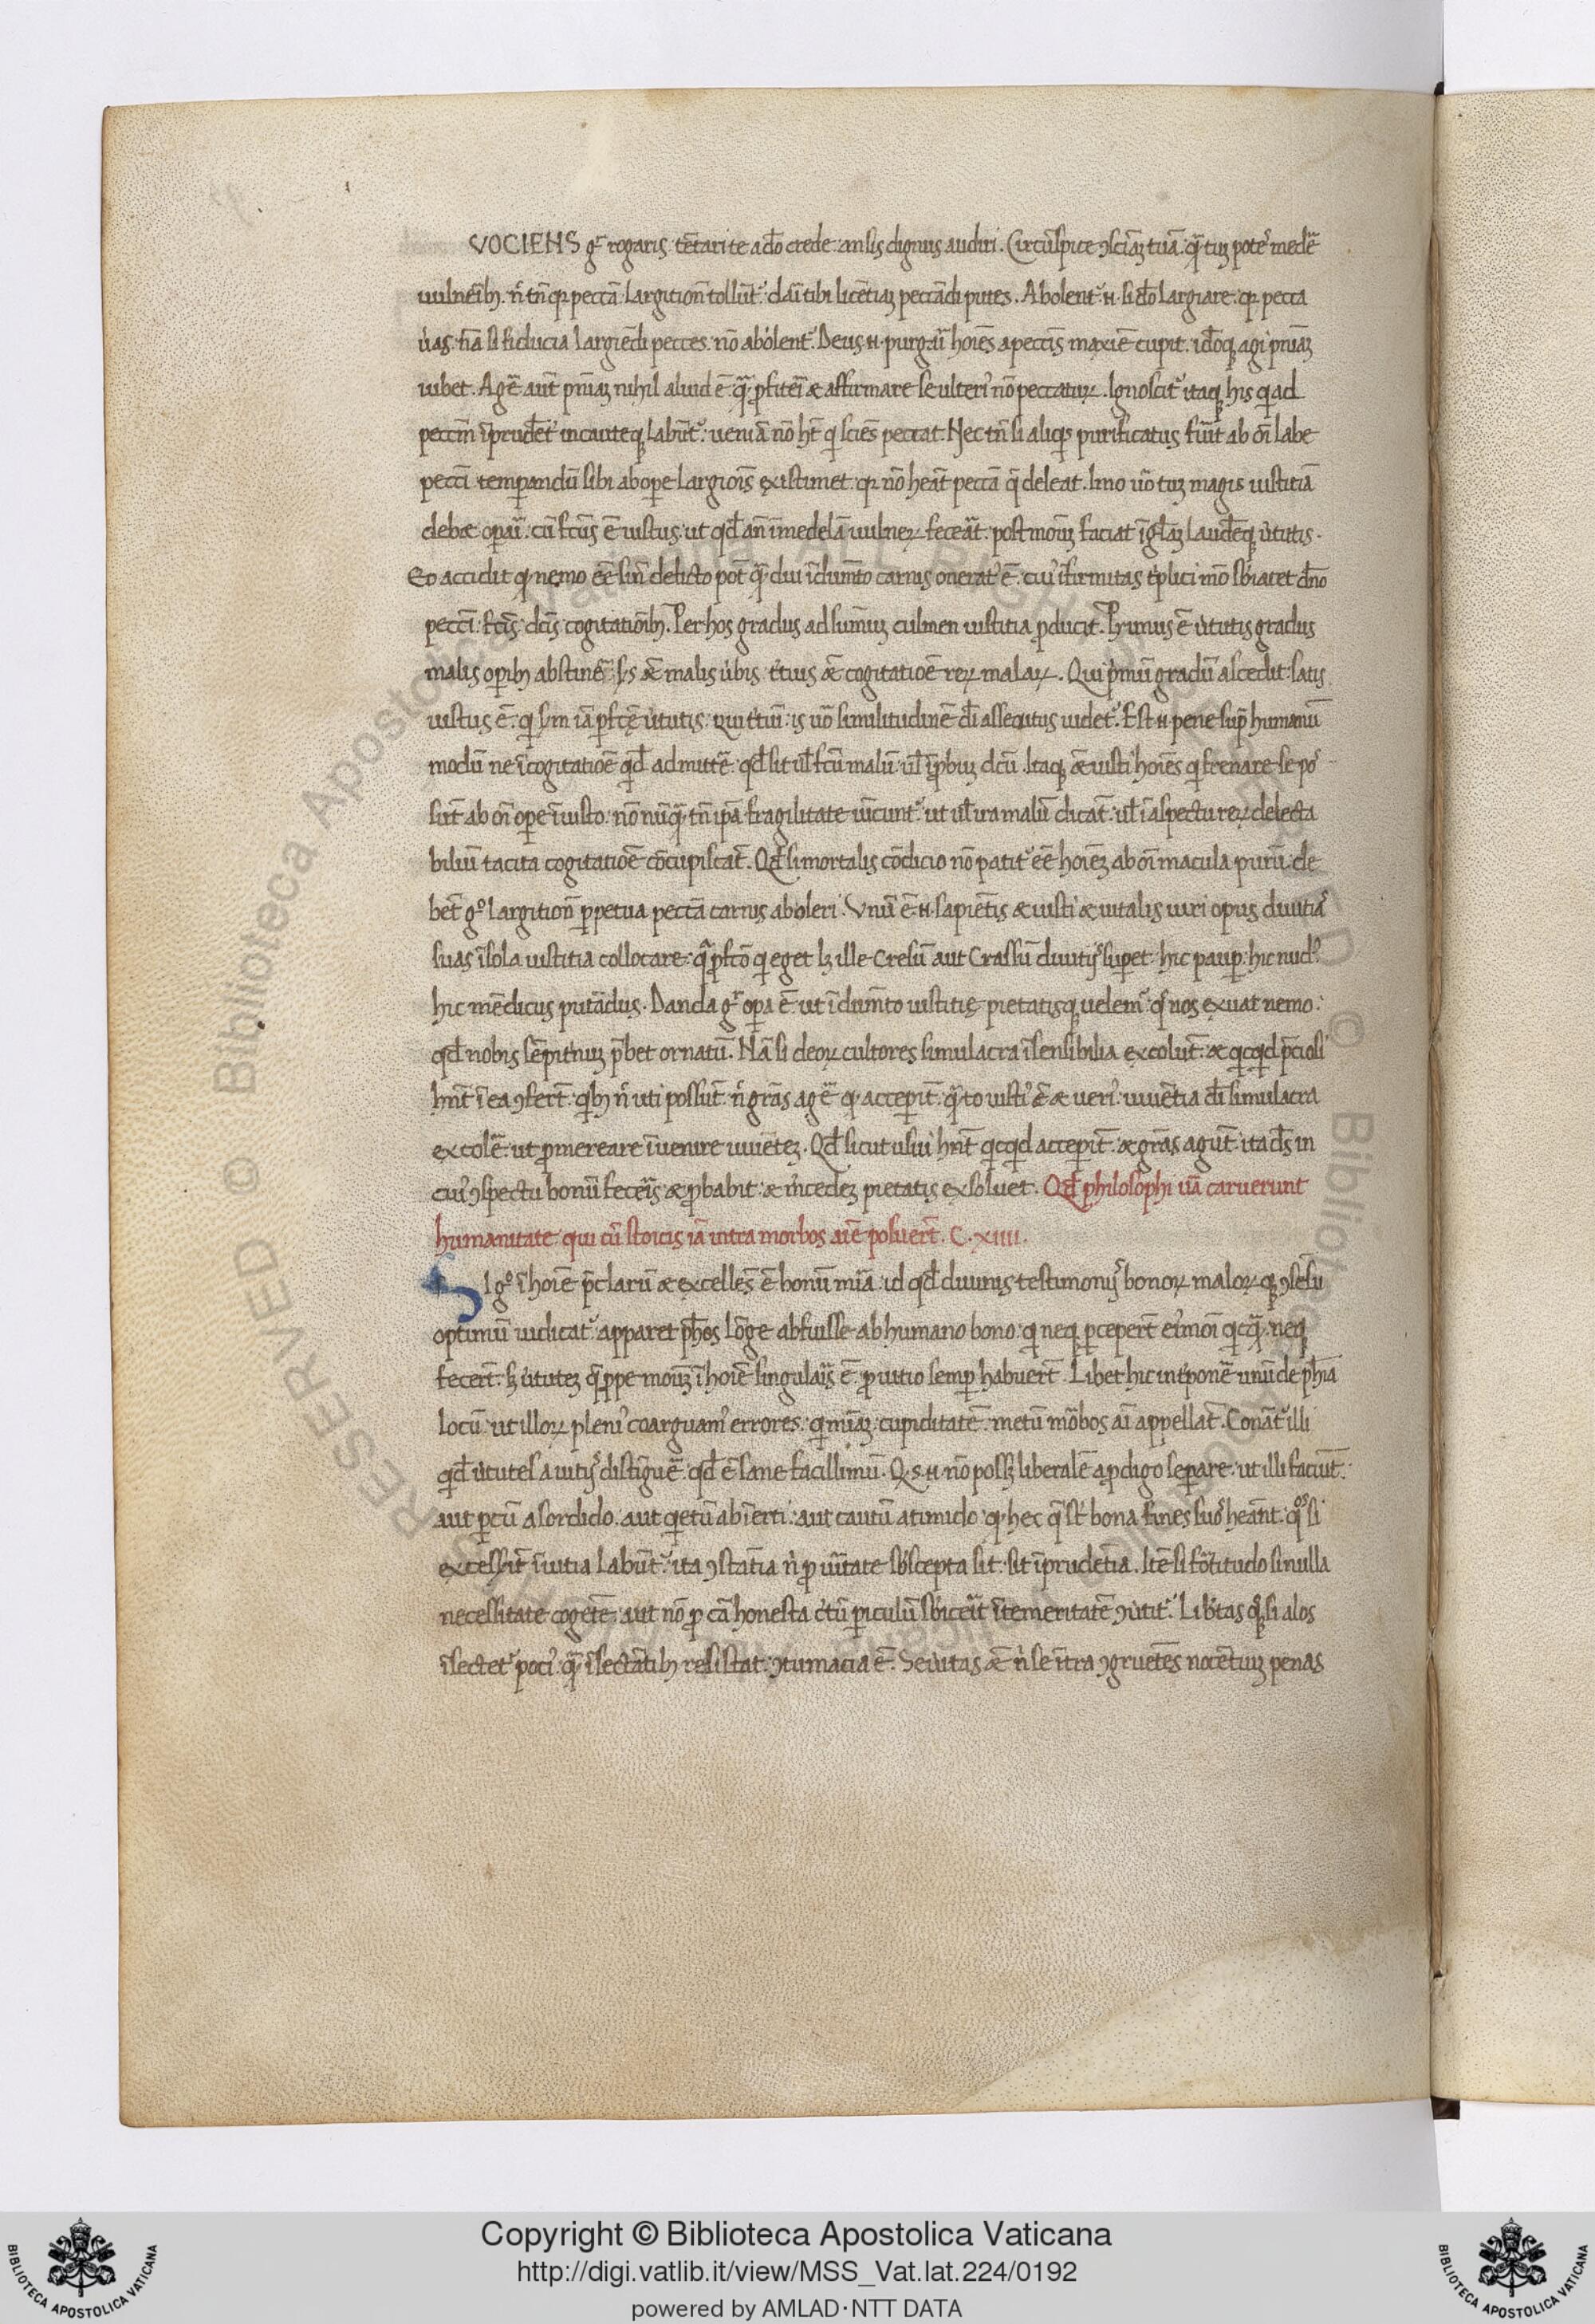 VOCIENS gͬ rogaris tētari te a dō crede: an sis dignus audiri. Circūspice ꝯsciāʒ tuā: q̄ tuʒ potes medē
uulneribꝫ. n̄ tn̄ qꝛ peccā largition̄ tollūt᷑: dari tibi licētiaʒ peccādi putes. Abolent᷑ .N. si dō largiare: qꝛ pecca
ueras: nā si fiducia largiēdi pecces: nō abolent᷑. Deus .N. purgari hoīes a peccīs maxīe cupit: idōqꝫ agi pniāʒ
iubet. Agē aut̄ pniāʒ nihil aliud ē: q̄ ꝓfiteri & affirmare se ulteriꝰ nō peccaturꝝ. Ignoscit᷑ itaqꝫ his qui ad
peccm̄ īprudēt incauteqꝫ labūt᷑: ueniā nō ht̄ qui sciēs peccat. Nec tn̄ si aliqis purificatus fuīt ab oī labe
peccī temꝑandū sibi ab oꝑe largicōis existimet: qꝛ nō heāt peccā q̄ deleat. Imo uō tuʒ magis iustitiā
debet oꝑari: cū fcūs ē iustus: ut qd̄ an̄ ī medelā uulneꝝ fecerāt: postmoīʒ faciat ī gl̄aʒ laudēqꝫ uirtutis.
Eo accidit qꝫ nemo eē sin̄ delicto pōt q̄ diu īdumto carnis oneratꝰ ē: cuiꝰ īfirmitas triplici mō sbiacet dn̄o
peccī: fcīs dcīs cogitationibꝫ. Per hos gradus ad sumuʒ culmen iustitia ꝓducit. Primus ē uirtutis gradus
malis oꝑibꝫ abstinē: ss & malis uerbis: tertius & cogitatioē reꝝ malaꝝ. Qui primū gradū ascedit: satis
iustus ē: qui sm̄ iā ꝑfctę uirtutis: qui tertiū: is uō similitudinē dī assequtus uidet᷑. Est .N. pene suꝑ humanū
modū ne ī cogitatioē qd̄ admittē: qd̄ sit uł fctū malū: uł īꝓbuʒ dcū. Itaqꝫ & iusti hoīes qui frenare se pos
sūt ab oī oꝑe iniusto: nō nūq̄ tn̄ ipā fragilitate uicunt᷑: ut uł ira malū dicāt: uł ī aspectu reꝝ delecta
biliū tacita cogitatioē cōcupiscāt. Qd̄ si mortalis cōdicio nō patit᷑ eē hoīeʒ ab oī macula purū: de
bēt gͦ largition̄ ꝑpetua peccā carnis aboleri. Vnū ē .N. sapiētis & iusti & uitalis uiri opus diuitiaˢ
suas ī sola iustitia collocare: q̄ ꝓfcō qui eget lʒ ille Cresū aut Crassū diuitijˢ suꝑet: hic pauꝑ: hic nudꝰ
hic mēdicus putādus. Danda gͬ oꝑa ē ut īdumto iustitię pietatisqꝫ uelem᷑: q̄ nos exuat nemo:
qd̄ nobis sēpitnuʒ p̄bet ornatū. Nā si deoꝝ cultores simulacra īsensibilia excolūt: & qicqid p̄ciosi
hn̄t ī ea ꝯferūt: qibꝫ n̄ uti possūt: n̄ grās agē qꝫ acceperīt: q̄to iustiꝰ ē & ueriꝰ uiuētia dī simulacra
excolē: ut ꝓmereare īuenire uiuēteʒ. Qd̄ sicut usui hn̄t qicqid acceperīt: & grās agūt: ita ds̄ in
cuiꝰ ꝯspectu bonū feceris & ꝓbabit: & mercedeʒ pietatis exsoluet. Qd̄ philosophi uiā caruerunt
humanitate qui cū stoicis iā intra morbos aīe posuerūt. C. xiiii.
Sl gͦ ī hoīe p̄clarū & excellēs ē bonū miā: id qd̄ diuinis testimonijˢ bonoꝝ maloꝝqꝫ ꝯsēsu
optimū iudicat᷑: apparet pħos lōge abfuisse ab humano bono: qui neqꝫ p̄ceperūt eiꝰmōi qicq̄: neqꝫ
fecerūt: sꝫ uirtuteʒ q̄ ꝓpemoīʒ ī hoīe singularis ē: ꝓ uitio semꝑ habuerūt. Libet hic interponē unū de pħia
locū: ut illoꝝ pleniꝰ coarguamꝰ errores: qui miāʒ: cupiditatē: metū morbos aī appellāt. Conāt᷑ illi
qd̄ uirtutes a uitijˢ distīguē: qd̄ ē sane facillimū. Q.s .N. nō possʒ liberalē a ꝓdigo seꝑare: ut illi faciūt:
aut ꝑcū a sordido: aut qietū ab inerti: aut cautū a timido: qꝫ hec q̄ sūt bona fines suoˢ heānt: qͦs si
excesserīt ī uitia labūt᷑: ita ꝯstātia n̄ ꝓ ueritate sꝰscepta sit: sit īprudētia. Itē si fortitudo si nulla
necessitate cogēte: aut nō ꝓ cā honesta certū periculū sbicerit ī temeritatē ꝯuertit᷑. Libertas q̄ si alos
īsectet᷑ pociꝰ q̄ īsectātibꝫ resistat: ꝯtumacia ē. Seueritas & n̄ se ītra ꝯgruētes nocētiuʒ penas
Copyright © Biblioteca Apostolica Vaticana
http://digi.vatlib.it/view/MSS_Vat.lat.224/0192
powered by AMLAD·NTT DATA